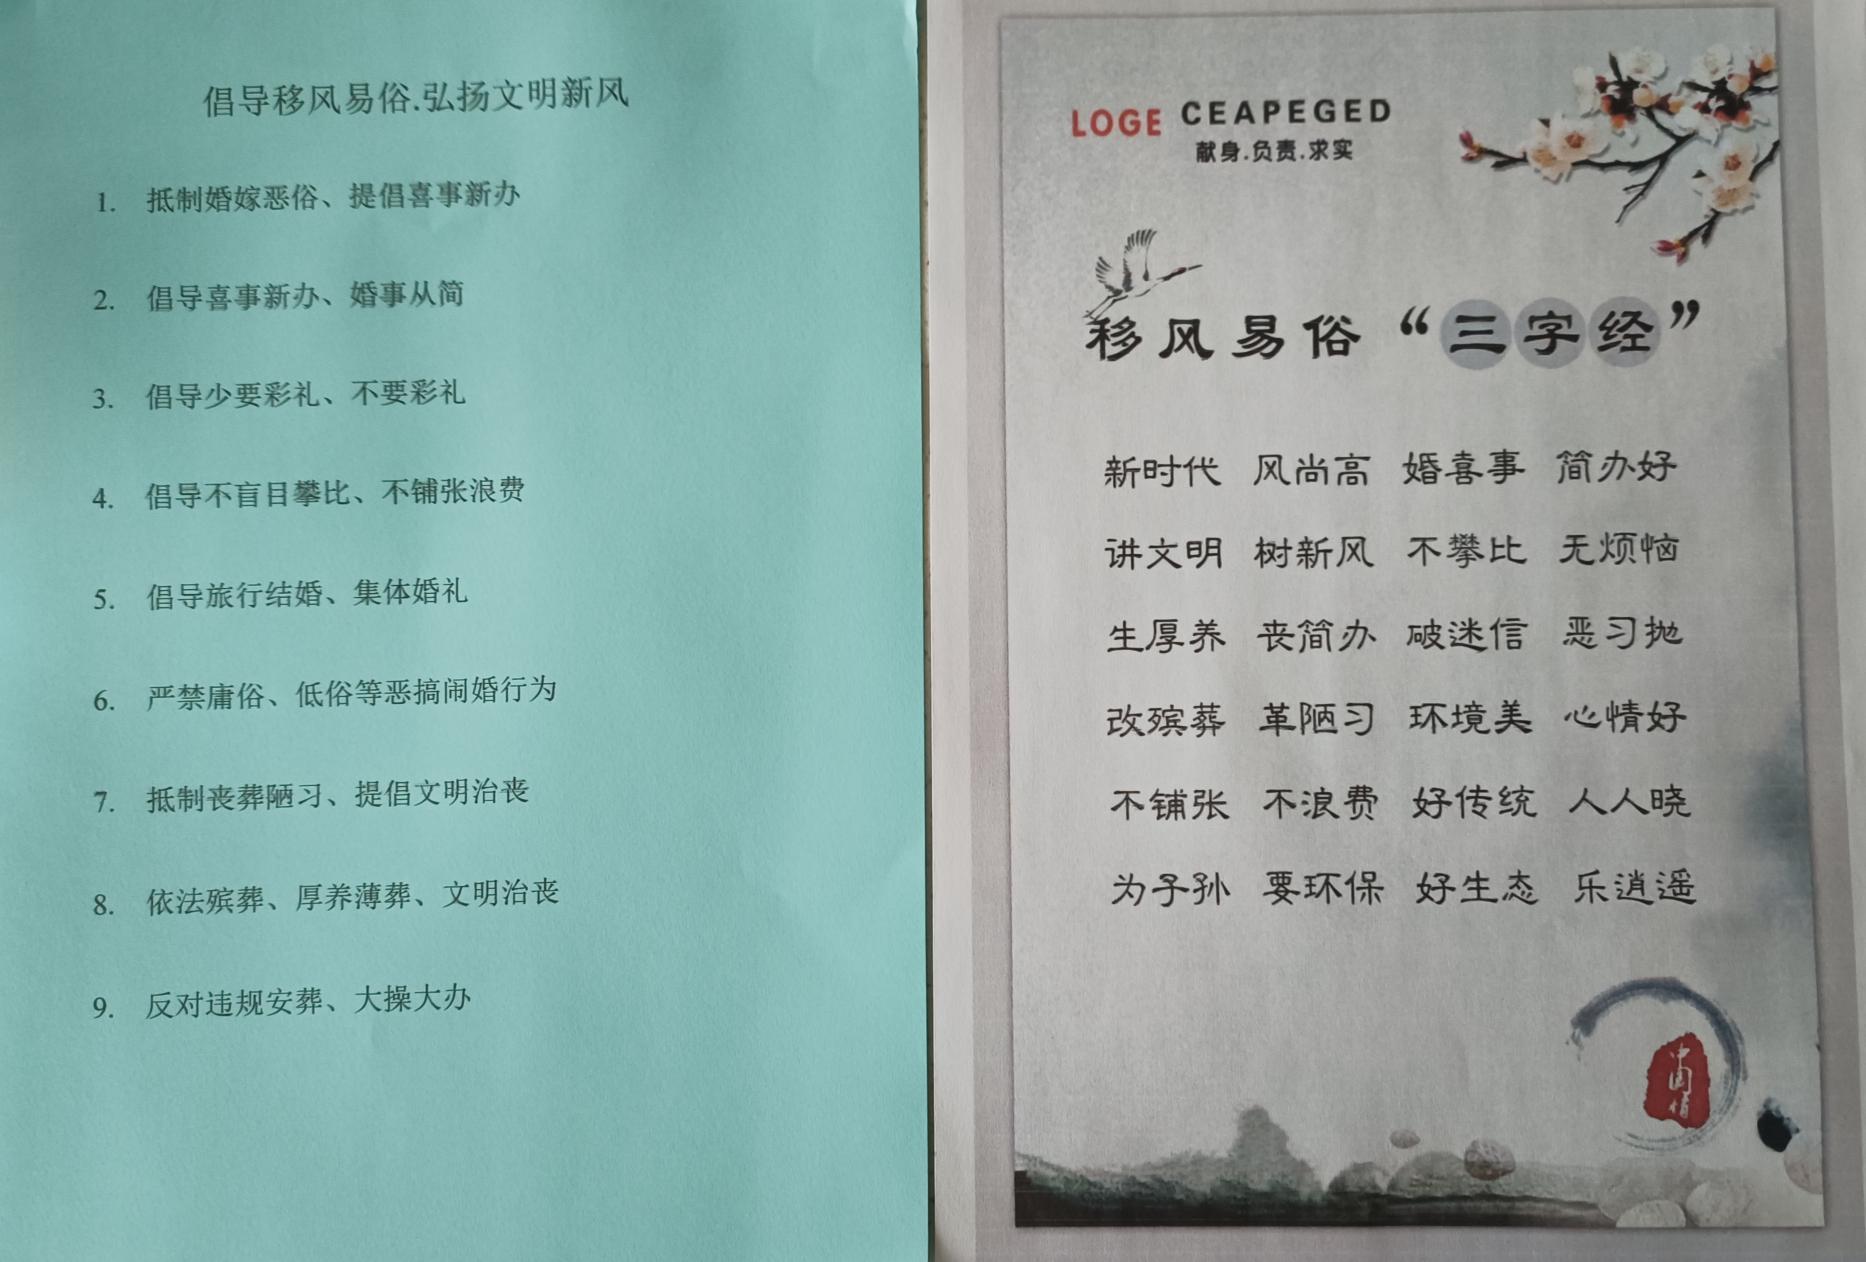 倡导移风易俗.弘扬文明新风
1. 抵制婚嫁恶俗、提倡喜事新办
2. 倡导喜事新办、婚事从简
3. 倡导少要彩礼、不要彩礼
4. 倡导不盲目攀比、不铺张浪费
5. 倡导旅行结婚、集体婚礼
6. 严禁庸俗、低俗等恶搞闹婚行为
7. 抵制丧葬陋习、提倡文明治丧
8. 依法殡葬、厚养薄葬、文明治丧
9. 反对违规安葬、大操大办
LOGE CEAPEGED
献身.负责.求实
移风易俗“三字经”
新时代 风尚高 婚喜事 简办好
讲文明 树新风 不攀比 无烦恼
生厚养 丧简办 破迷信 恶习抛
改殡葬 革陋习 环境美 心情好
不铺张 不浪费 好传统 人人晓
为子孙 要环保 好生态 乐逍遥
中国情